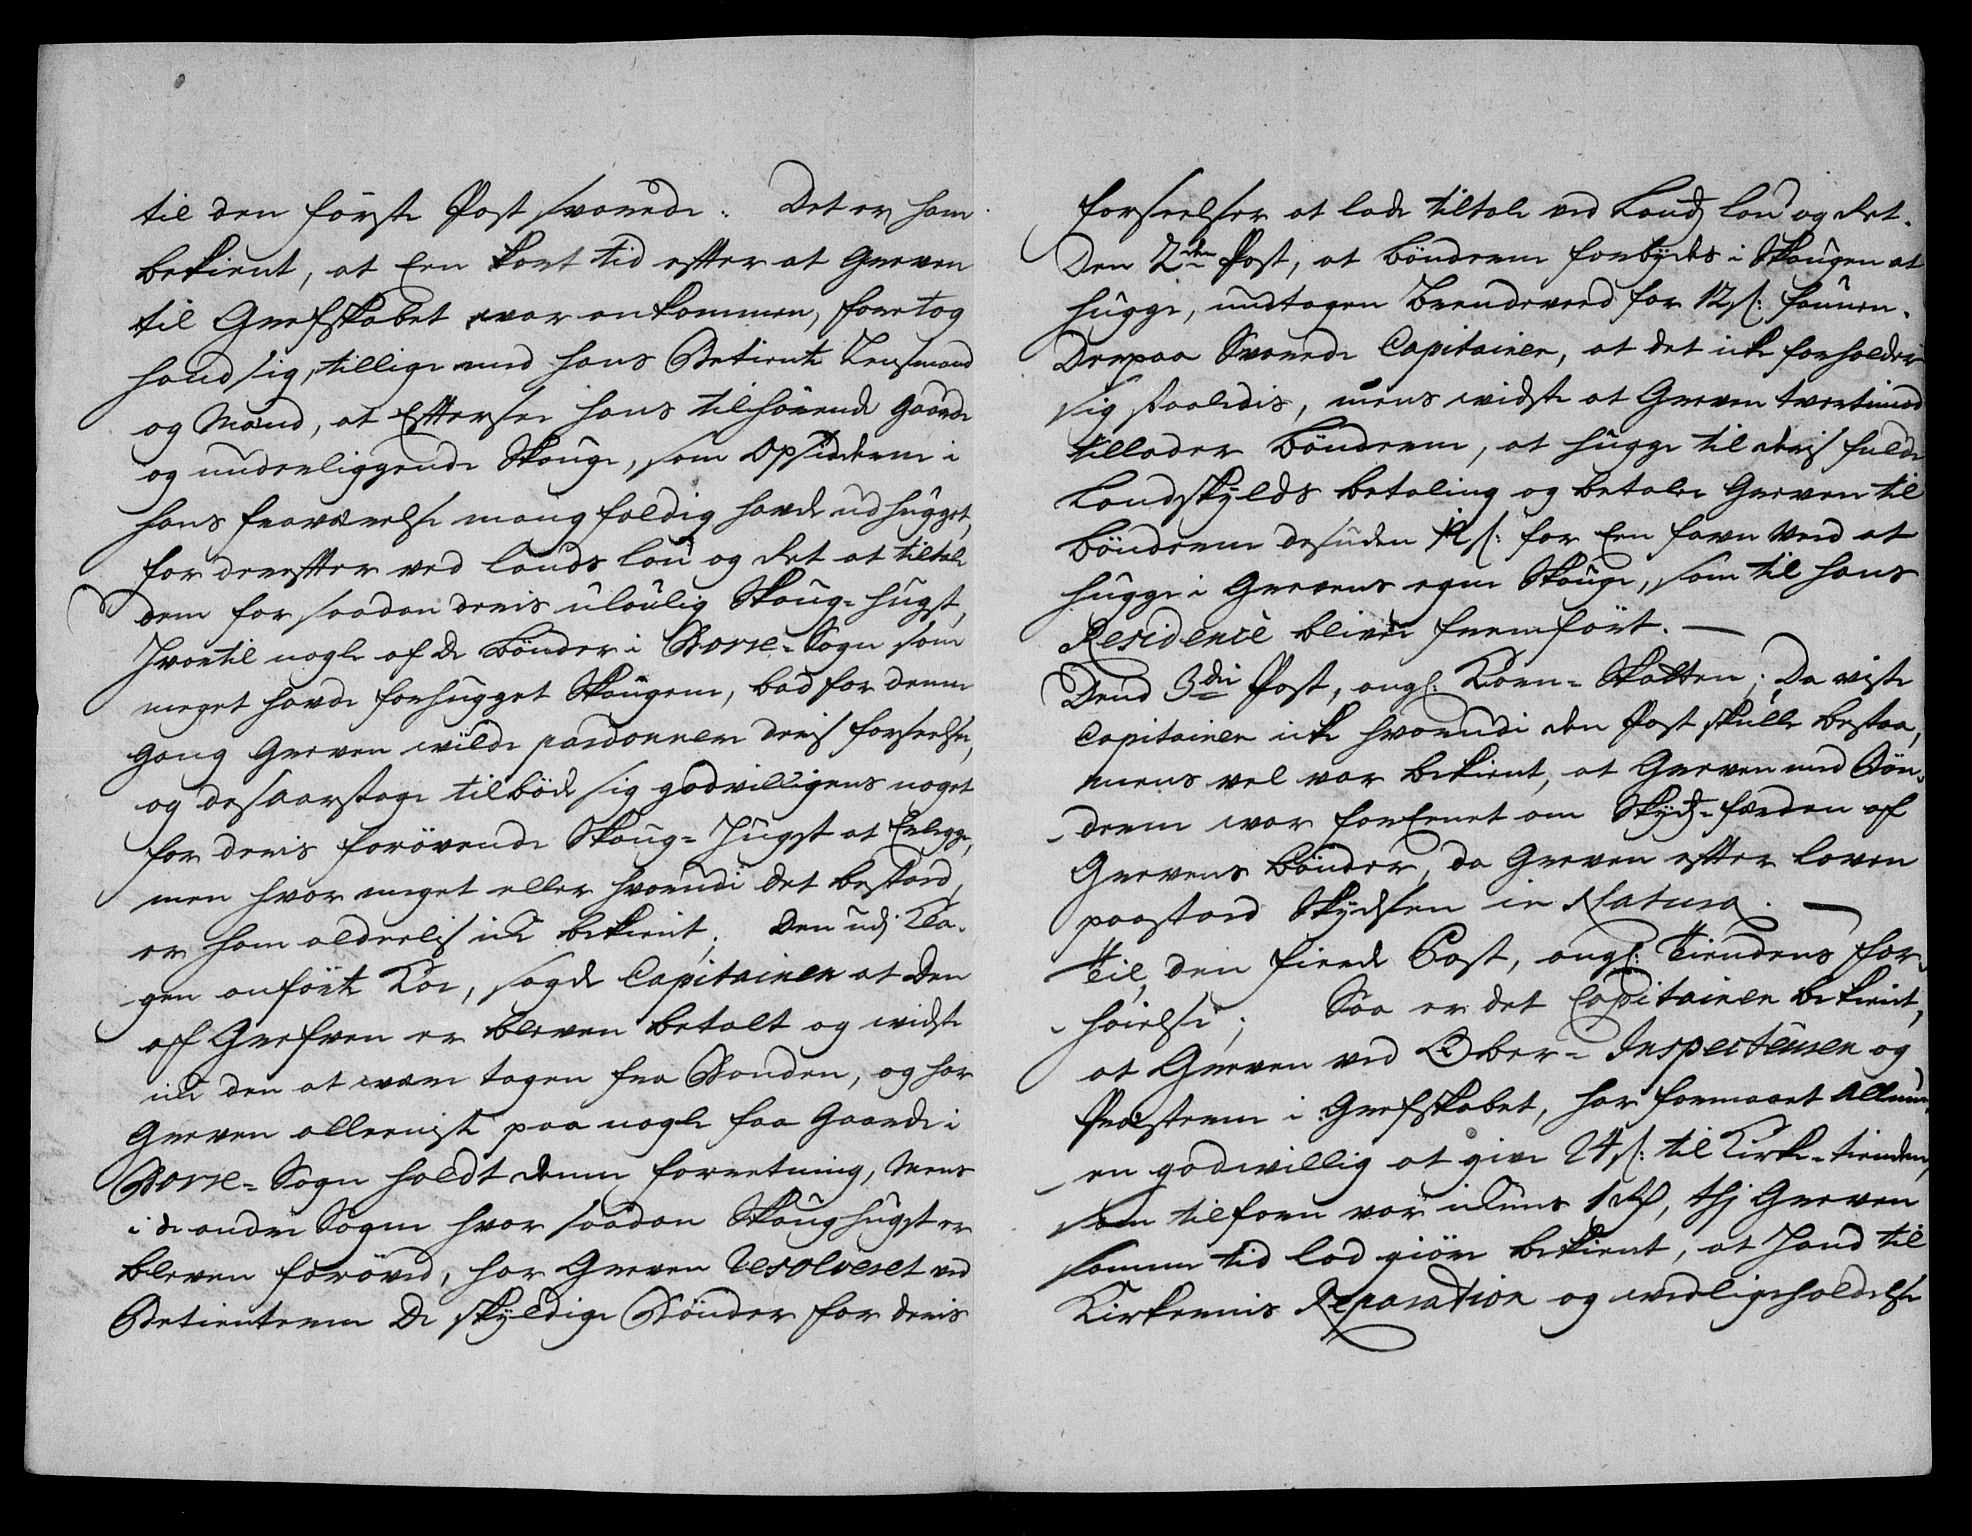 til den förste Post svarede. Det er ham
bekient, at Een kort tid efter at Greven
til Grefskabet war ankommen, foretog
hand sig, tillige med hans Betiente Lensmand
og Mænd, at Efterse hans tilhörende Gaarde
og underliggende Skouge, som Opsidderne i
hans fraværelse mangfoldig hafde udhugget,
for derefter ved lands lou og Ret at tiltale
dem for saadan deris uloulig Skoug-hugst,
Hvortil nogle af de Bönder i Borre-Sogn som
meget hafde forhugget Skougene, bad for denne
gang Greven wilde pardonnere deris forseelse,
og desaarsage tilböd sig godvilligens noget
for deris forövende Skoug-Hugst at Erlegge,
men hvor meget eller hvorudi det bestod,
er ham alderlis icke bekient; Den udj Kla-
gen anförte Koe, sagde Capitainen at den
af Grefven er bleven betalt og widste
icke den at wære tagen fra Bonden, og har
Greven alleeniste paa nogle faa Gaarde i
Borre-Sogn holdt denne forretning, Mens
i de andre Sogne hvor saadan Skoughugst er
bleven forövед, har Greven Resolveret ved
Betienterne De skyldige Bönder for deris
forseelser at lade tiltale ved Lands lou og Ret.
Den 2den Post, at bönderne forbydes i Skougen at
hugge, undtagen Brendeveed for 12 s: faunen.
Derpaa Svarede Capitainen, at det icke forholder
sig saaledis, mens widste at Greven tvertimod
tillader Bönderne, at hugge til deris fulde
Landskylds betaling og betaler Greven til
bönderne desuden 12 s: for Een favn Ved at
hugge i Grevens egne Skouge, som til hans
Residence bliver fremfört. —
Dend 3die Post, ang: Korn-Skatten; Da viste
Capitainen icke hvorudi den Post skulle bestaa,
mens vel var bekient, at Greven med Bön-
derne war forEenet om Skyds-færden af
Grevens Bönder, da Greven efter loven
paastod Skydsen in Natura. —
Til den fierde Post, ang: Tiendens for-
höielse; Saa er det Capitainen bekient,
at Greven ved Ober-Inspecteuren og
Præsterne i Grefskabet, har formaaet Almu-
en godwillig at give 24 s: til Kirke-tienden,
som tilforn var ickuns 1 Rd, thj Greven
samme tid lod giöre bekient, at Hand til
Kirkernis Reparation og wedligeholdelse